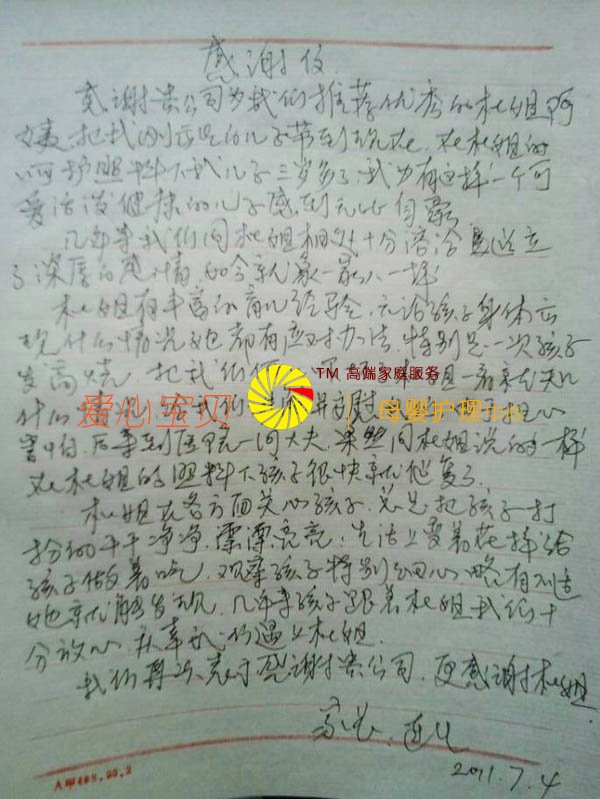 感谢信
感谢贵公司为我们推荐优秀的杜姐阿
姨,把我刚出生的儿子带到现在,在杜姐的
呵护照料下我儿子三岁多了,我为有这样一个可
爱活泼健康的儿子感到无比自豪
几年来我们同杜姐相处十分溶洽建立
了深厚的感情,如今就象一家人一样
杜姐有丰富的育儿经验,无论孩子身体出
现什么情况她都有应对办法,特别是一次孩子
发高烧,把我们 杜姐一看就知
什么 安慰 担心
害怕,后来到医院一问大夫,果然同杜姐说的一样
在杜姐的照料下孩子很快就能康复了
杜姐在各方面关心孩子,总是把孩子打
扮的干干净净,漂漂亮亮,生活上变着花样给
孩子做着吃,观察孩子特别细心,略有不适
她就能发现,几年来孩子跟着杜姐我们十
分放心,庆幸我们遇上杜姐.
我们再次感谢贵公司,更感谢杜姐
2011.7.4
爱心宝贝
TM 高端家庭服务
母婴护理中心